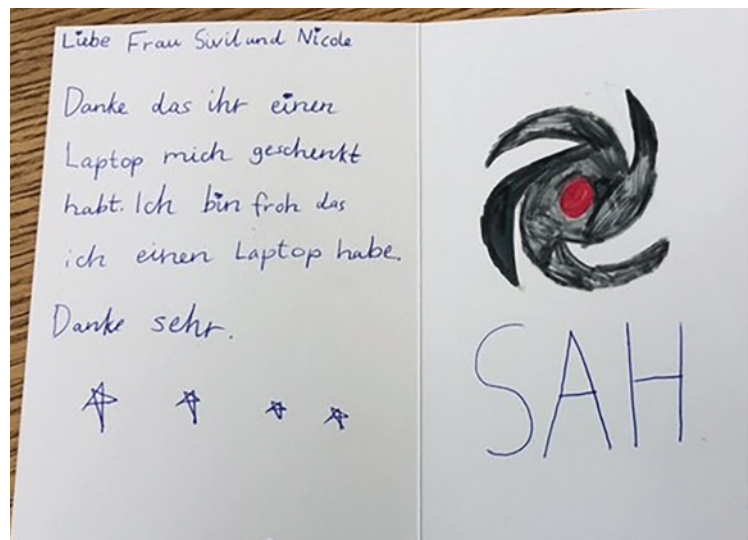 Liebe Frau Sivil und Nicole
Danke das ihr einen
Laptop mich geschenkt
habt. Ich bin froh das
ich einen Laptop habe.
Danke sehr.
SAH